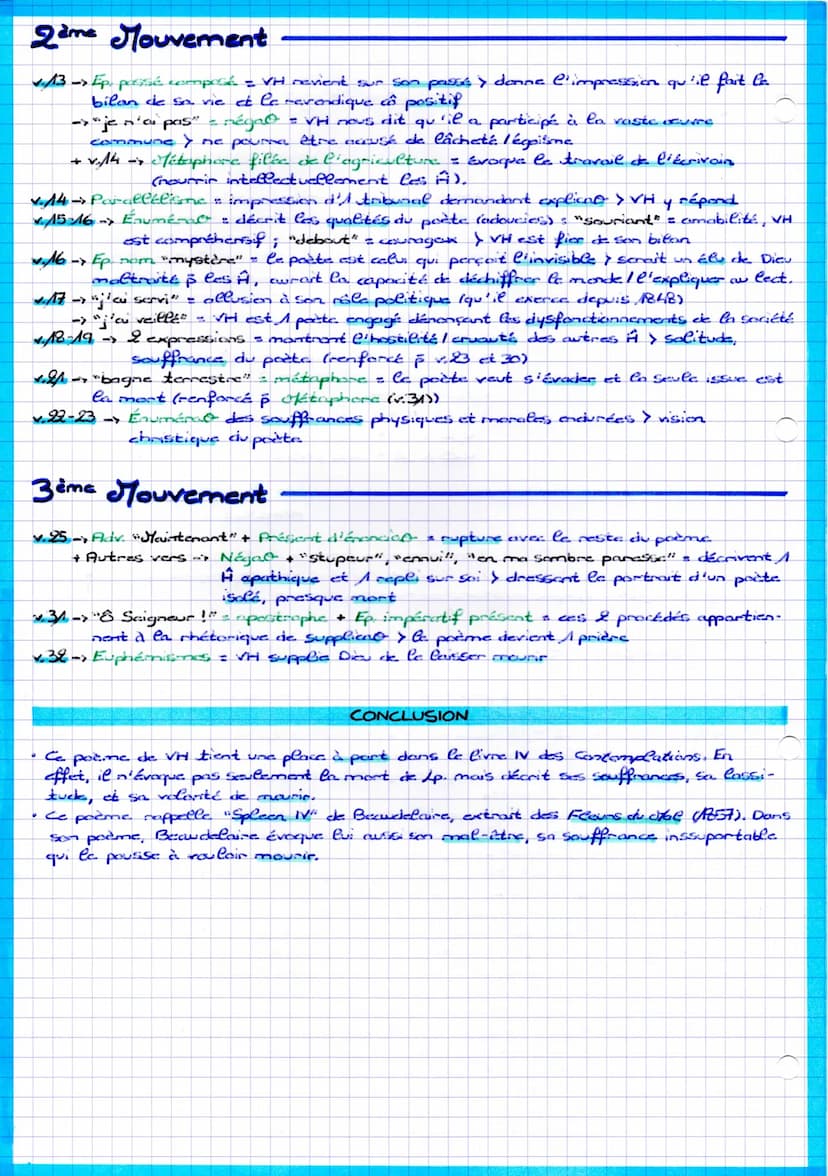 2ème Mouvement
v.13 -> Ep. passé composé = VH revient sur son passé > donne l'impression qu'il fait le
bilan de sa vie et le revendique cô positif
-> "je n'ai pas" = négaO = VH nous dit qu'il a participé à la vaste œuvre
commune > ne pourra être accusé de lâcheté / égoïsme
+ v.14 -> Métaphore filée de l'agriculture = évoque le travail de l'écrivain
(nourrir intellectuellement les Ĥ).
v.14 -> Parallélisme = impression d'1 tribunal demandant explicaO > VH y répond
v.15-16 -> ÉnuméraO = décrit les qualités du poète (adoucies) : "souriant" = amabilité, VH
est compréhensif ; "debout" = courageux > VH est fier de son bilan
v.16 -> Ep. nom "mystère" = le poète est celui qui perçoit l'invisible > serait un élu de Dieu
maltraité p̄ les Ĥ, aurait la capacité de déchiffrer le monde / l'expliquer au lect.
v.17 -> "j'ai servi" = allusion à son rôle politique (qu'il exerce depuis 1848)
-> "j'ai veillé" = VH est 1 poète engagé dénonçant les dysfonctionnements de la société
v.18-19 -> 2 expressions = montrent l'hostilité / cruauté des autres Ĥ > solitude,
souffrance du poète (renforcé p̄ v.23 et 30)
v.21 -> "bagne terrestre" = métaphore = le poète veut s'évader et la seule issue est
la mort (renforcé p̄ Métaphore (v.31))
v.22-23 -> ÉnuméraO des souffrances physiques et morales endurées > vision
christique du poète
3ème Mouvement
v.25 -> Adv. "Maintenant" + Présent d'énonciaO = rupture avec le reste du poème
+ Autres vers -> NégaO + "stupeur", "ennui", "en ma sombre paresse" = décrivent 1
Ĥ apathique et 1 repli sur soi > dressent le portrait d'un poète
isolé, presque mort
v.31 -> "Ô Seigneur !" = apostrophe + Ep. impératif présent = ces 2 procédés appartien-
nent à la rhétorique de supplicaO > le poème devient 1 prière
v.32 -> Euphémismes = VH supplie Dieu de le laisser mourir
CONCLUSION
• Ce poème de VH tient une place à part dans le livre IV des Contemplations. En
effet, il n'évoque pas seulement la mort de Lp. mais décrit ses souffrances, sa lassi-
tude, et sa volonté de mourir.
• Ce poème rappelle "Spleen IV" de Beaudelaire, extrait des Fleurs du Mal (1857). Dans
son poème, Beaudelaire évoque lui aussi son mal-être, sa souffrance inssuportable
qui le pousse à vouloir mourir.